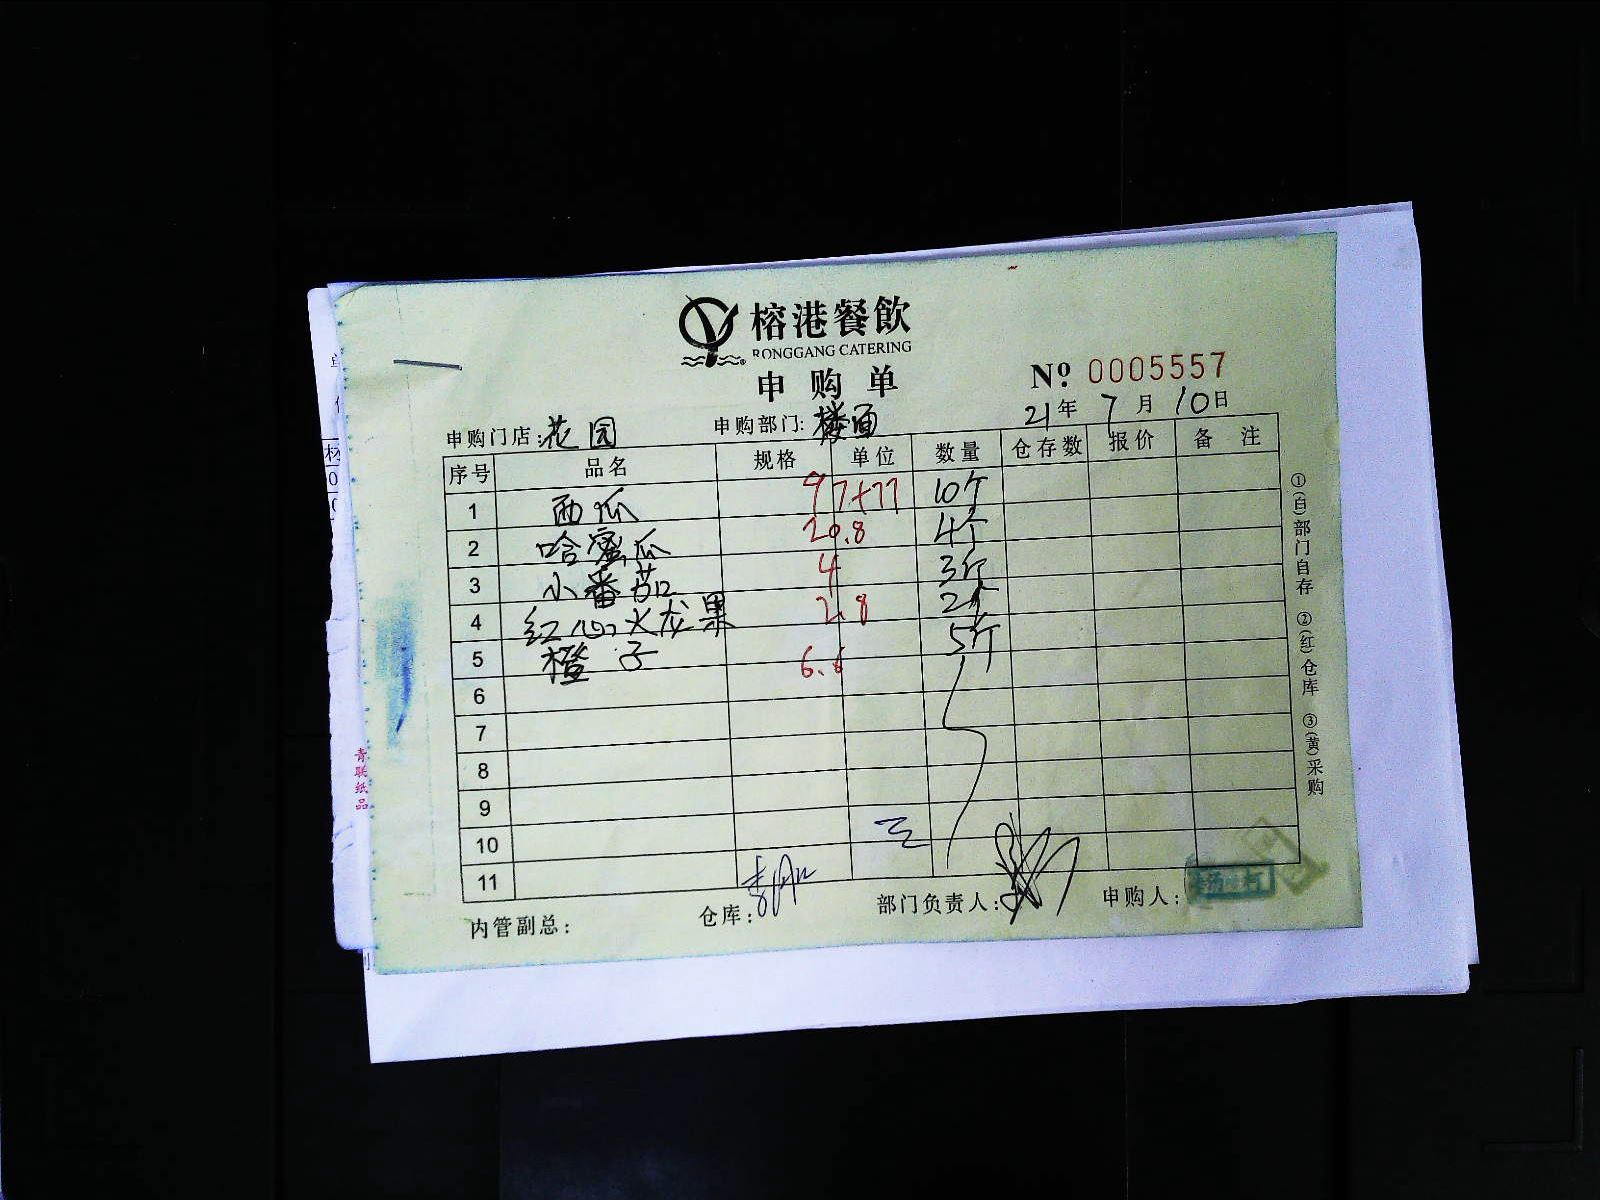 榕港餐飲
RONGGANG CATERING
申购单
№ 0005557
21年 7月 10日
申购门店:花园 申购部门:楼面
序号 品名 规格 单位 数量 仓存数 报价 备注
1 西瓜 97+77 10个
2 哈蜜瓜 20.8 4个
3 小番茄 4 3斤
4 红心火龙果 2.8 2个
5 橙子 6.6 5斤
6
7
8
9
10
11
内管副总: 仓库: 部门负责人: 申购人:
①(白)部门自存 ②(红)仓库 ③(黄)采购
青联纸品